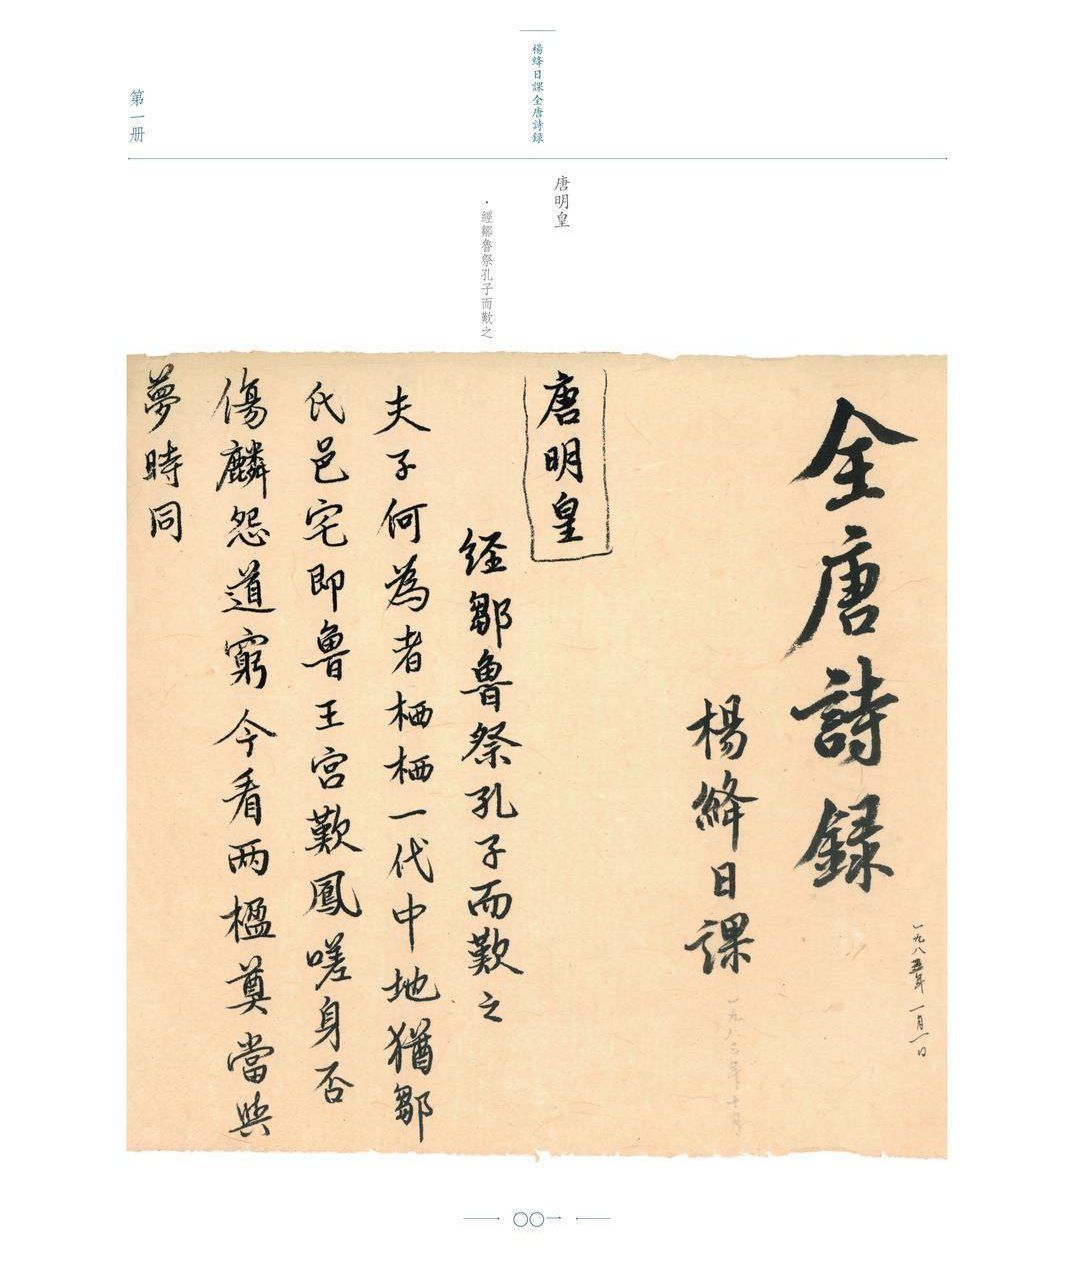 楊絳日課全唐詩録
第一册
唐明皇
·經鄒魯祭孔子而歎之
全唐詩録
一九八五年一月一日
楊絳日課
一九八三年十月
唐明皇
経鄒魯祭孔子而歎之
夫子何為者栖栖一代中地猶鄒
氏邑宅即魯王宮歎鳳嗟身否
傷麟怨道窮今看两楹奠當與
夢時同
〇〇一